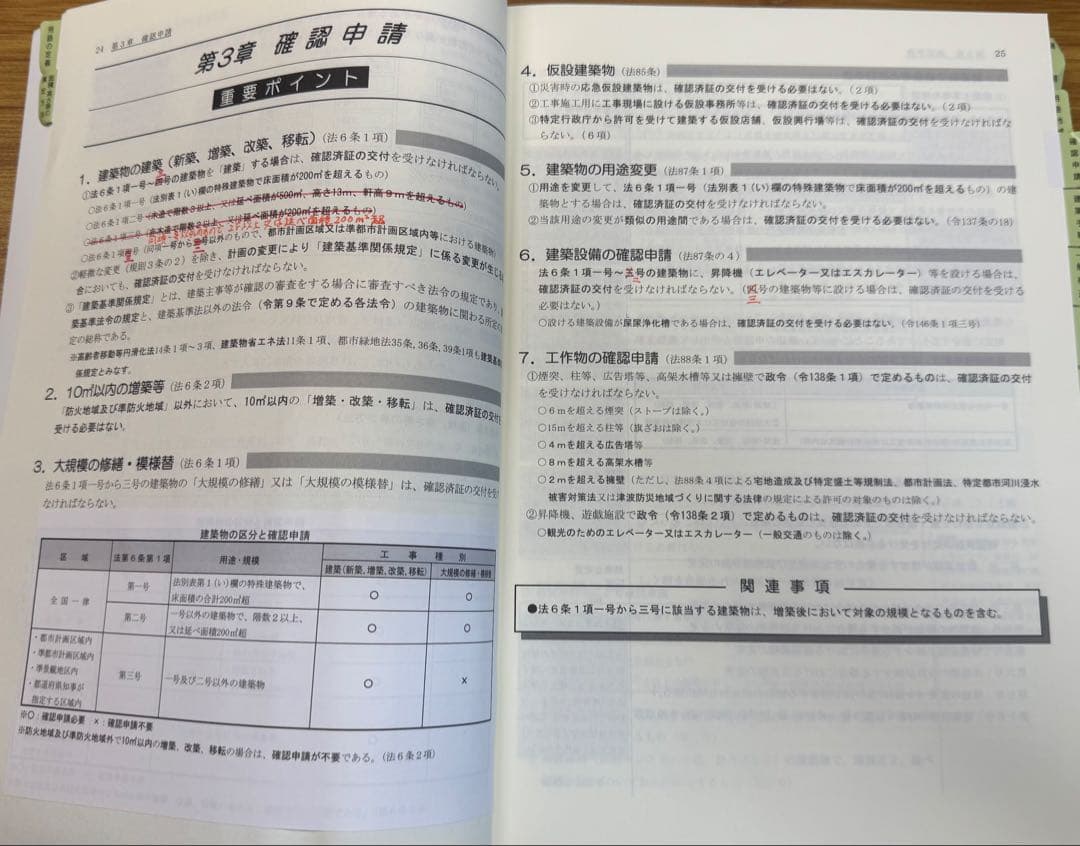 24 第3章 確認申請
第3章 確認申請
重要ポイント
1. 建築物の建築（新築、増築、改築、移転）（法6条1項）
①法6条1項一号〜四号の建築物を「建築」する場合は、確認済証の交付を受けなければならない。
三
○法6条1項一号（法別表1(い)欄の特殊建築物で床面積が200㎡を超えるもの）
○法6条1項二号（木造で階数3以上、又は延べ面積が500㎡、高さ13m、軒高9mを超えるもの）
○法6条1項三号（非木造で階数2以上、又は延べ面積が200㎡を超えるもの）
2F以上又は延べ面積200㎡超
○法6条1項四号（同項一号から三号以外のもので、都市計画区域又は準都市計画区域内等における建築物）
三 二
②軽微な変更（規則3条の2）を除き、計画の変更により「建築基準関係規定」に係る変更が生じる
合においても、確認済証の交付を受けなければならない。
③「建築基準関係規定」とは、建築主事等が確認の審査をする場合に審査すべき法令の規定であり、
築基準法令の規定と、建築基準法以外の法令（令第9条で定める各法令）の建築物に関わる所定の
定の総称である。
※高齢者移動等円滑化法14条1項〜3項、建築物省エネ法11条1項、都市緑地法35条, 36条, 39条1項も建築基
係規定とみなす。
2. 10㎡以内の増築等（法6条2項）
「防火地域及び準防火地域」以外において、10㎡以内の「増築・改築・移転」は、確認済証の交付
受ける必要はない。
3. 大規模の修繕・模様替（法6条1項）
法6条1項一号から三号の建築物の「大規模の修繕」又は「大規模の模様替」は、確認済証の交付を受
なければならない。
建築物の区分と確認申請
区域 法第6条第1項 用途・規模 工事種別
建築（新築, 増築, 改築, 移転） 大規模の修繕・模様替
全国一律 第一号 法別表第1(い)欄の特殊建築物で、床面積の合計200㎡超 ○ ○
第二号 一号以外の建築物で、階数2以上、又は延べ面積200㎡超 ○ ○
・都市計画区域内
・準都市計画区域内
・準景観地区内
・都道府県知事が
指定する区域内
第三号 一号及び二号以外の建築物 ○ ×
※○：確認申請必要 ×：確認申請不要
※防火地域及び準防火地域外で10㎡以内の増築、改築、移転の場合は、確認申請が不要である。（法6条2項）
25
4. 仮設建築物（法85条）
①災害時の応急仮設建築物は、確認済証の交付を受ける必要はない。（2項）
②工事施工用に工事現場に設ける仮設事務所等は、確認済証の交付を受ける必要はない。（2項）
③特定行政庁から許可を受けて建築する仮設店舗、仮設興行場等は、確認済証の交付を受けなければな
らない。（6項）
5. 建築物の用途変更（法87条1項）
①用途を変更して、法6条1項一号（法別表1(い)欄の特殊建築物で床面積が200㎡を超えるもの）の建
築物とする場合は、確認済証の交付を受けなければならない。
②当該用途の変更が類似の用途間である場合は、確認済証の交付を受ける必要はない。（令137条の18）
6. 建築設備の確認申請（法87条の4）
法6条1項一号〜三号の建築物に、昇降機（エレベーター又はエスカレーター）等を設ける場合は、
二
確認済証の交付を受けなければならない。（四号の建築物等に設ける場合は、確認済証の交付を受ける
三
必要はない。）
○設ける建築設備が屎尿浄化槽である場合は、確認済証の交付を受ける必要はない。（令146条1項三号）
7. 工作物の確認申請（法88条1項）
①煙突、柱等、広告塔等、高架水槽等又は擁壁で政令（令138条1項）で定めるものは、確認済証の交付
を受けなければならない。
○6mを超える煙突（ストーブは除く。）
○15mを超える柱等（旗ざおは除く。）
○4mを超える広告塔等
○8mを超える高架水槽等
○2mを超える擁壁（ただし、法88条4項による宅地造成及び特定盛土等規制法、都市計画法、特定都市河川浸水
被害対策法又は津波防災地域づくりに関する法律の規定による許可の対象のものは除く。）
②昇降機、遊戯施設で政令（令138条2項）で定めるものは、確認済証の交付を受けなければならない。
○観光のためのエレベーター又はエスカレーター（一般交通のものは除く。）
関連事項
●法6条1項一号から三号に該当する建築物は、増築後において対象の規模となるものを含む。